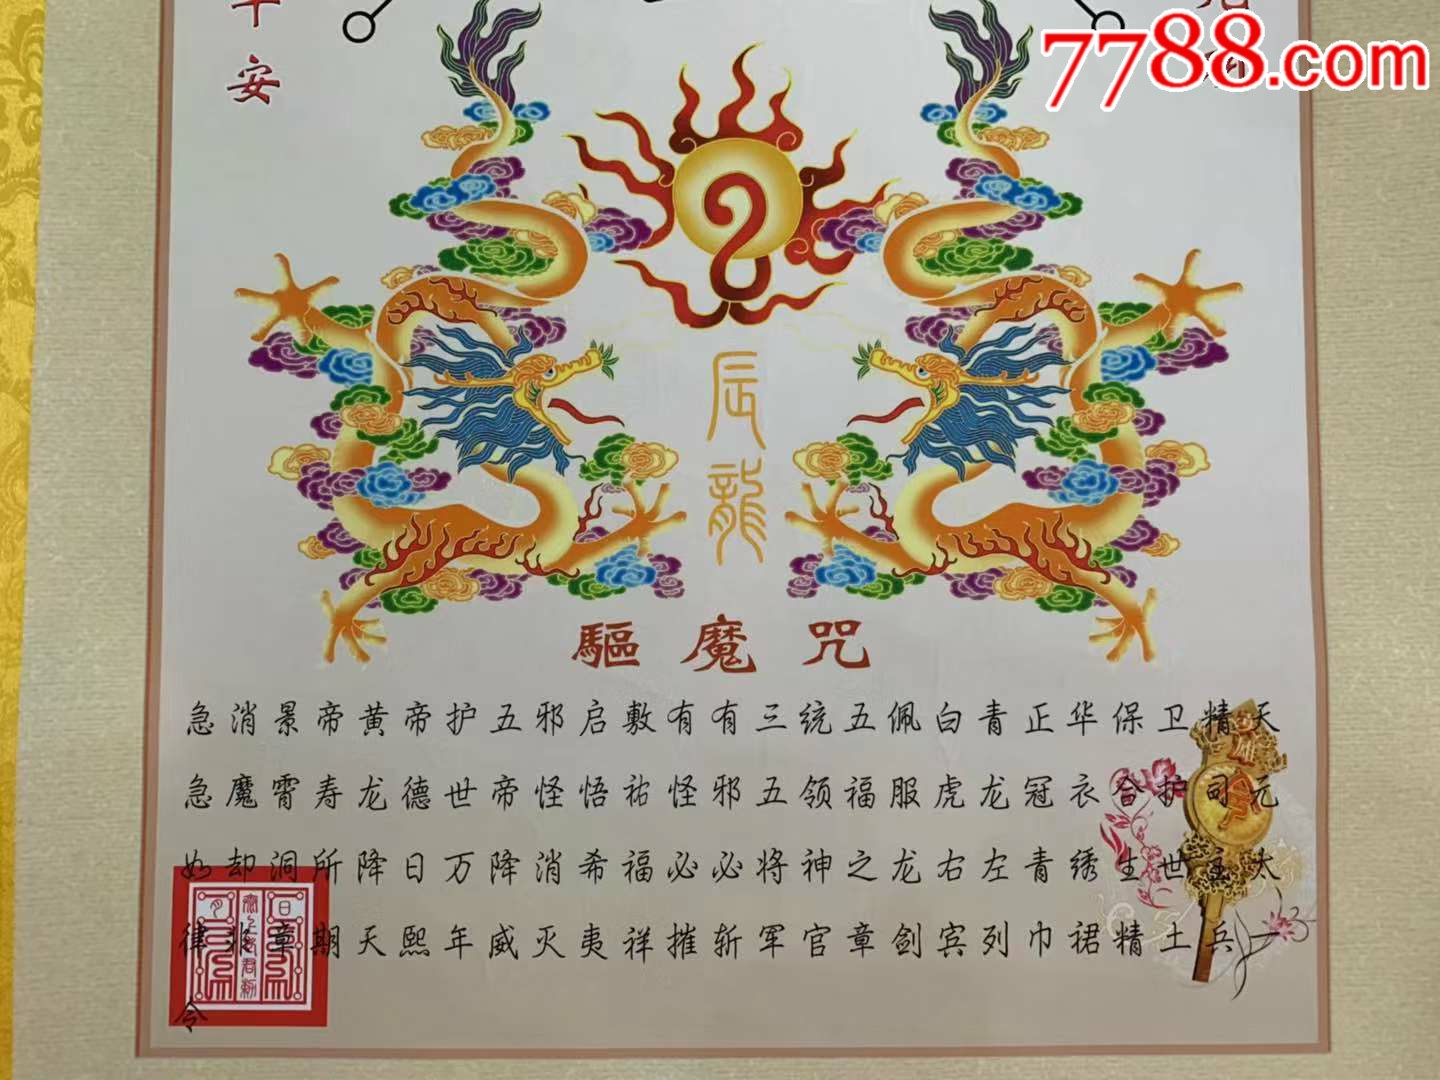 7788.com
安
辰龍
驅魔咒
天元太一
精司主兵
卫护世土
保合生精
华衣绣裙
正冠青巾
青龙左列
白虎右宾
佩服龙剑
五福之章
统领神官
三五将军
有邪必斩
有怪必摧
敷祐福祥
启悟希夷
邪怪消灭
五帝降威
护世万年
帝德日熙
黄龙降天
帝寿所期
景霄洞章
消魔却非
急急如律令